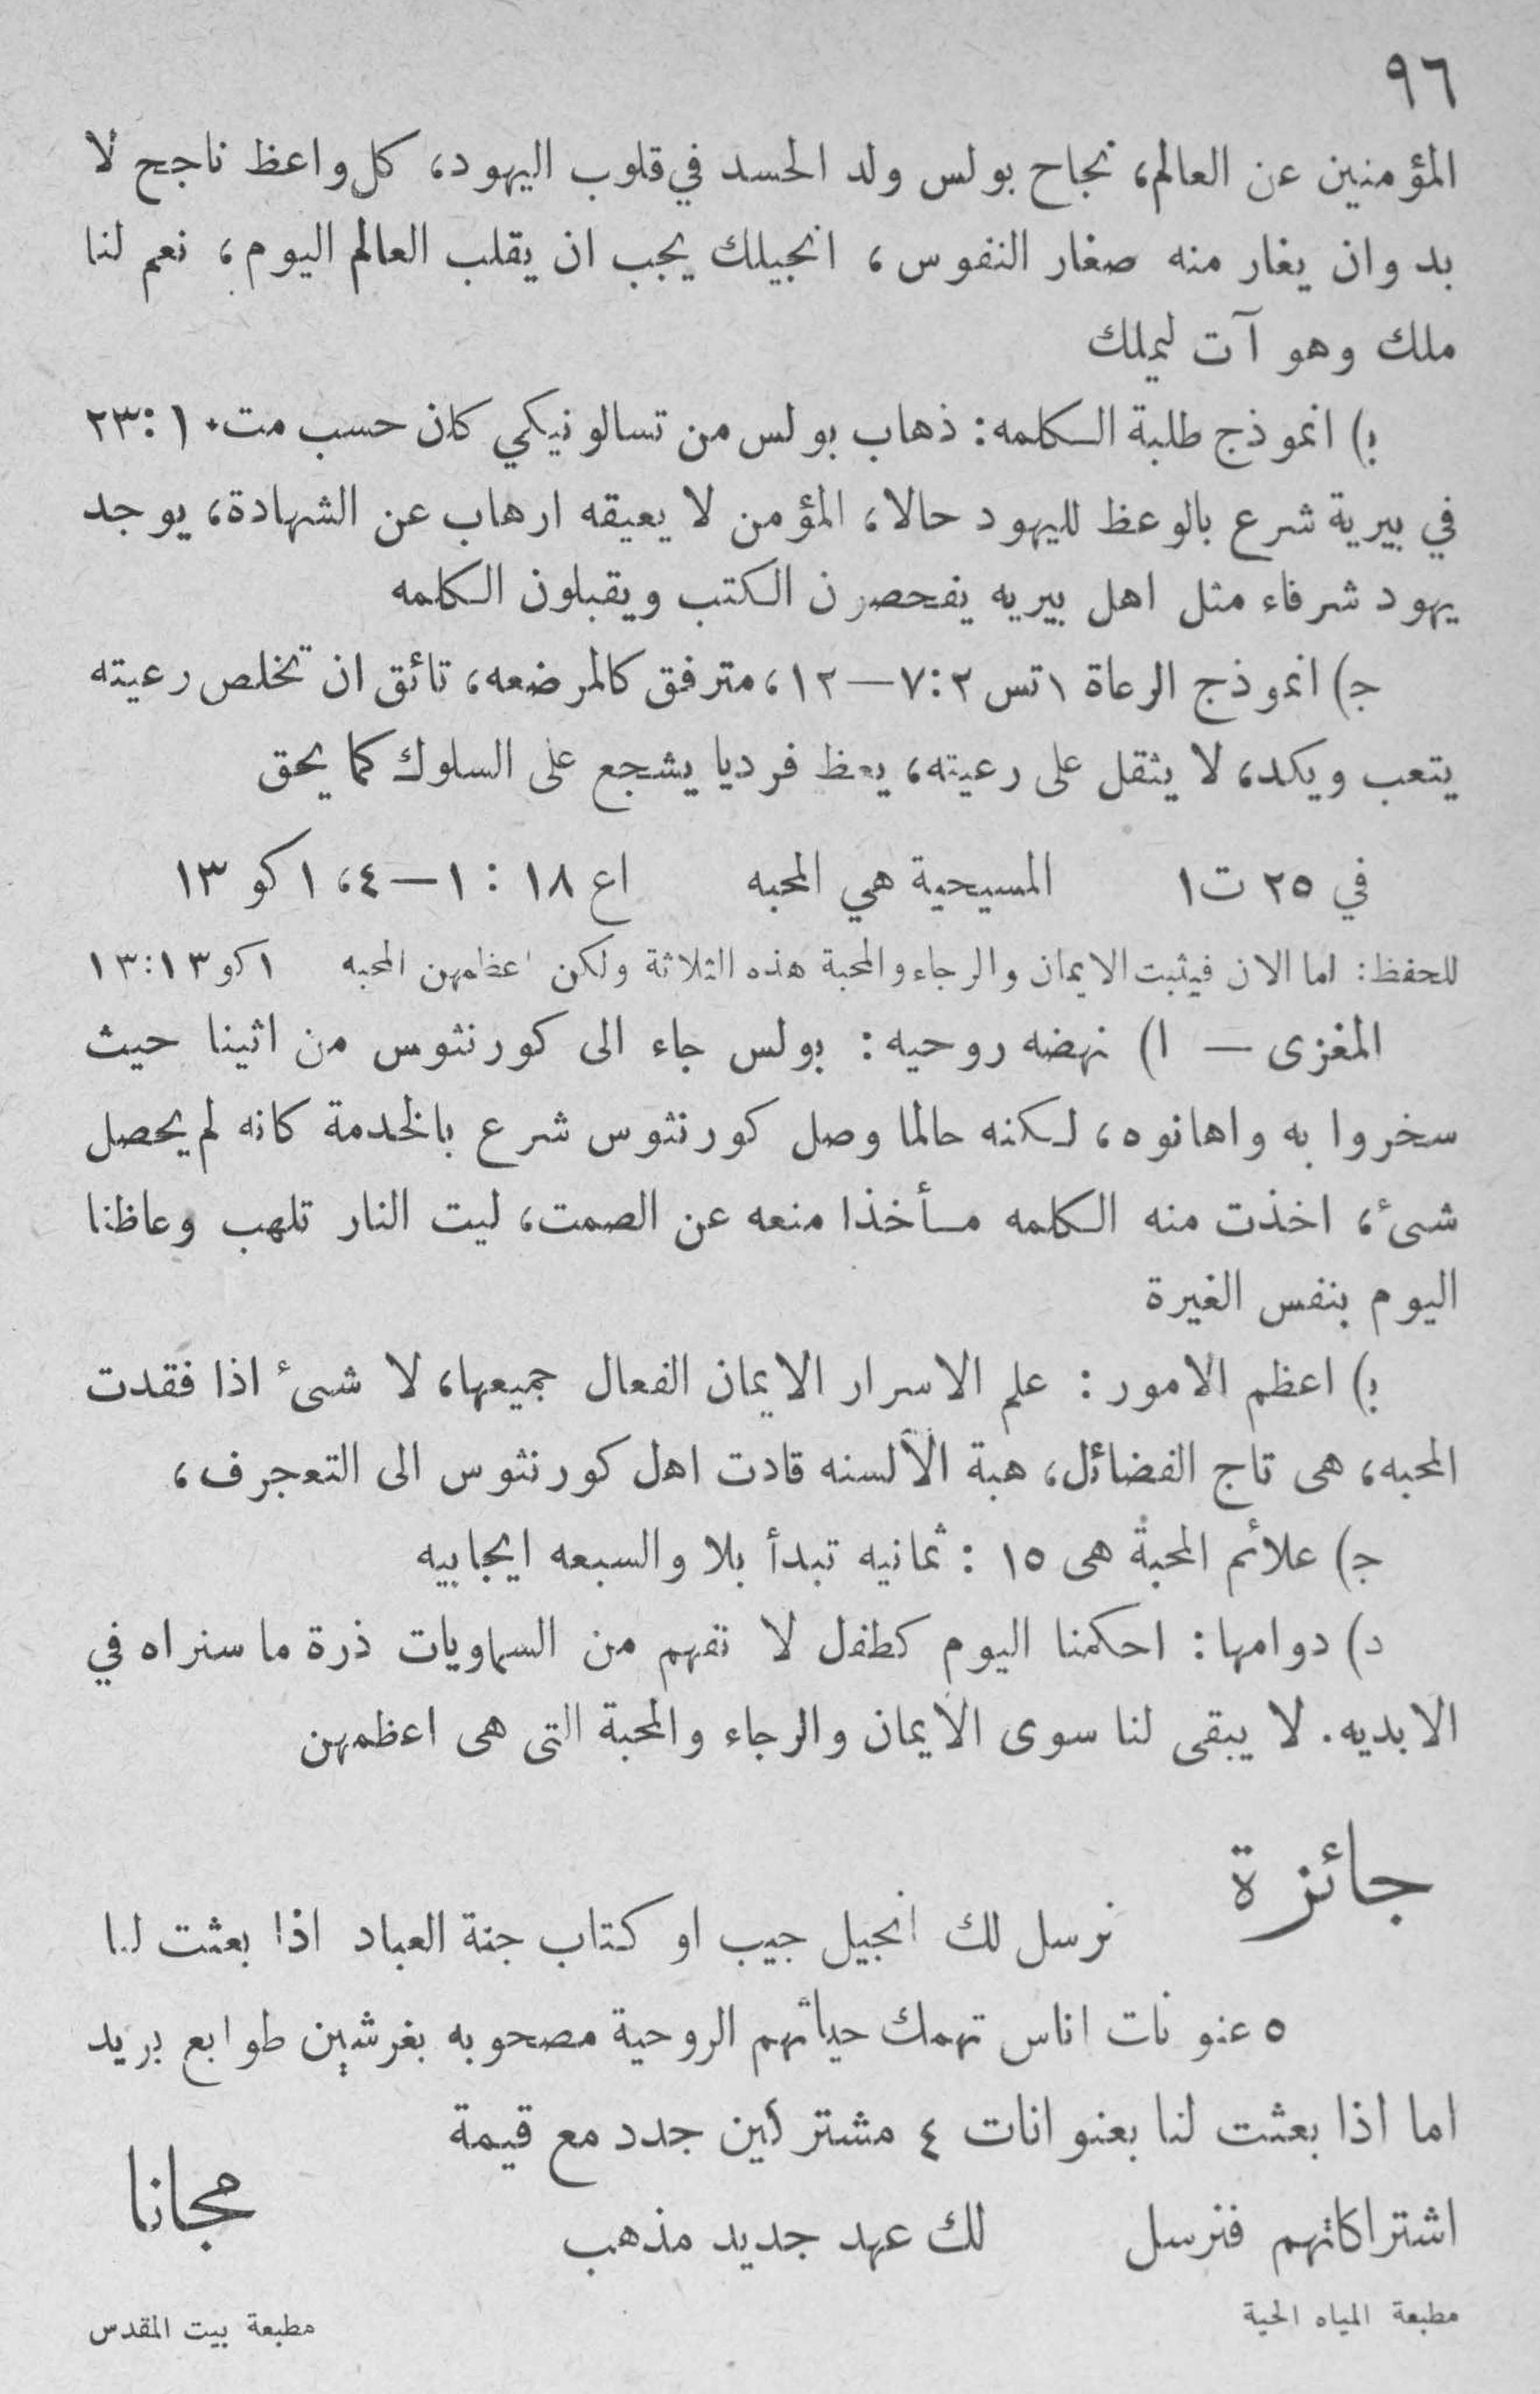 ٩٦
المؤمنين عن العالم، نجاح بولس ولد الحسد في قلوب اليهود، كل واعظ ناجح لا
بد وان يغار منه صغار النفوس، انجيلك يجب ان يقلب العالم اليوم، نعم لنا
ملك وهو آت ليملك
ب) انموذج طلبة الكلمه: ذهاب بولس من تسالونيكي كان حسب مت ١٠:٢٣
في بيرية شرع بالوعظ لليهود حالا، المؤمن لا يعيقه ارهاب عن الشهادة، يوجد
يهود شرفاء مثل اهل بيريه يفحصون الكتب ويقبلون الكلمه
ج) انموذج الرعاة ١ تس ٢:٧—١٢، مترفق كالمرضعه، تائق ان تخلص رعيته
يتعب ويكد، لا يثقل على رعيته، يعظ فرديا يشجع على السلوك كما يحق
في ٢٥ ت١ المسيحية هي المحبه اع ١٨ : ١—٤، ١ كو ١٣
للحفظ: اما الان فيثبت الايمان والرجاء والمحبة هذه الثلاثة ولكن اعظمهن المحبه ١ كو ١٣:١٣
المغزى — ا) نهضه روحيه: بولس جاء الى كورنثوس من اثينا حيث
سخروا به واهانوه، لكنه حالما وصل كورنثوس شرع بالخدمة كانه لم يحصل
شىء، اخذت منه الكلمه مأخذا منعه عن الصمت، ليت النار تلهب وعاظنا
اليوم بنفس الغيرة
ب) اعظم الامور: علم الاسرار الايمان الفعال جميعها، لا شىء اذا فقدت
المحبه، هى تاج الفضائل، هبة الألسنه قادت اهل كورنثوس الى التعجرف،
ج) علائم المحبة هى ١٥ : ثمانيه تبدأ بلا والسبعه ايجابيه
د) دوامها: احكمنا اليوم كطفل لا تفهم من السماويات ذرة ما سنراه في
الابديه. لا يبقى لنا سوى الايمان والرجاء والمحبة التى هى اعظمهن
جائزة
نرسل لك انجيل جيب او كتاب جنة العباد اذا بعثت لنا
٥ عنونات اناس تهمك حياتهم الروحية مصحوبه بغرشين طوابع بريد
اما اذا بعثت لنا بعنوانات ٤ مشتركين جدد مع قيمة
اشتراكاتهم فنرسل لك عهد جديد مذهب مجانا
مطبعة المياه الحية مطبعة بيت المقدس